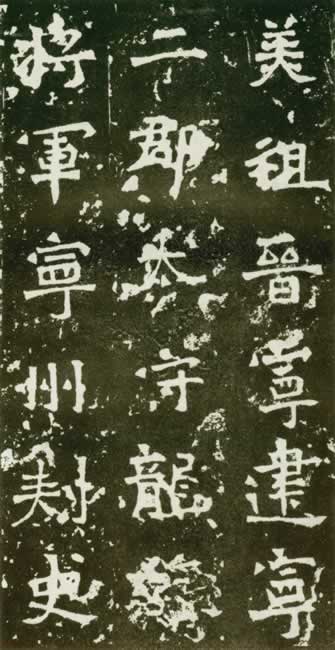 美祖晉寧建寧
二郡太守龍驤
將軍寧州刾史